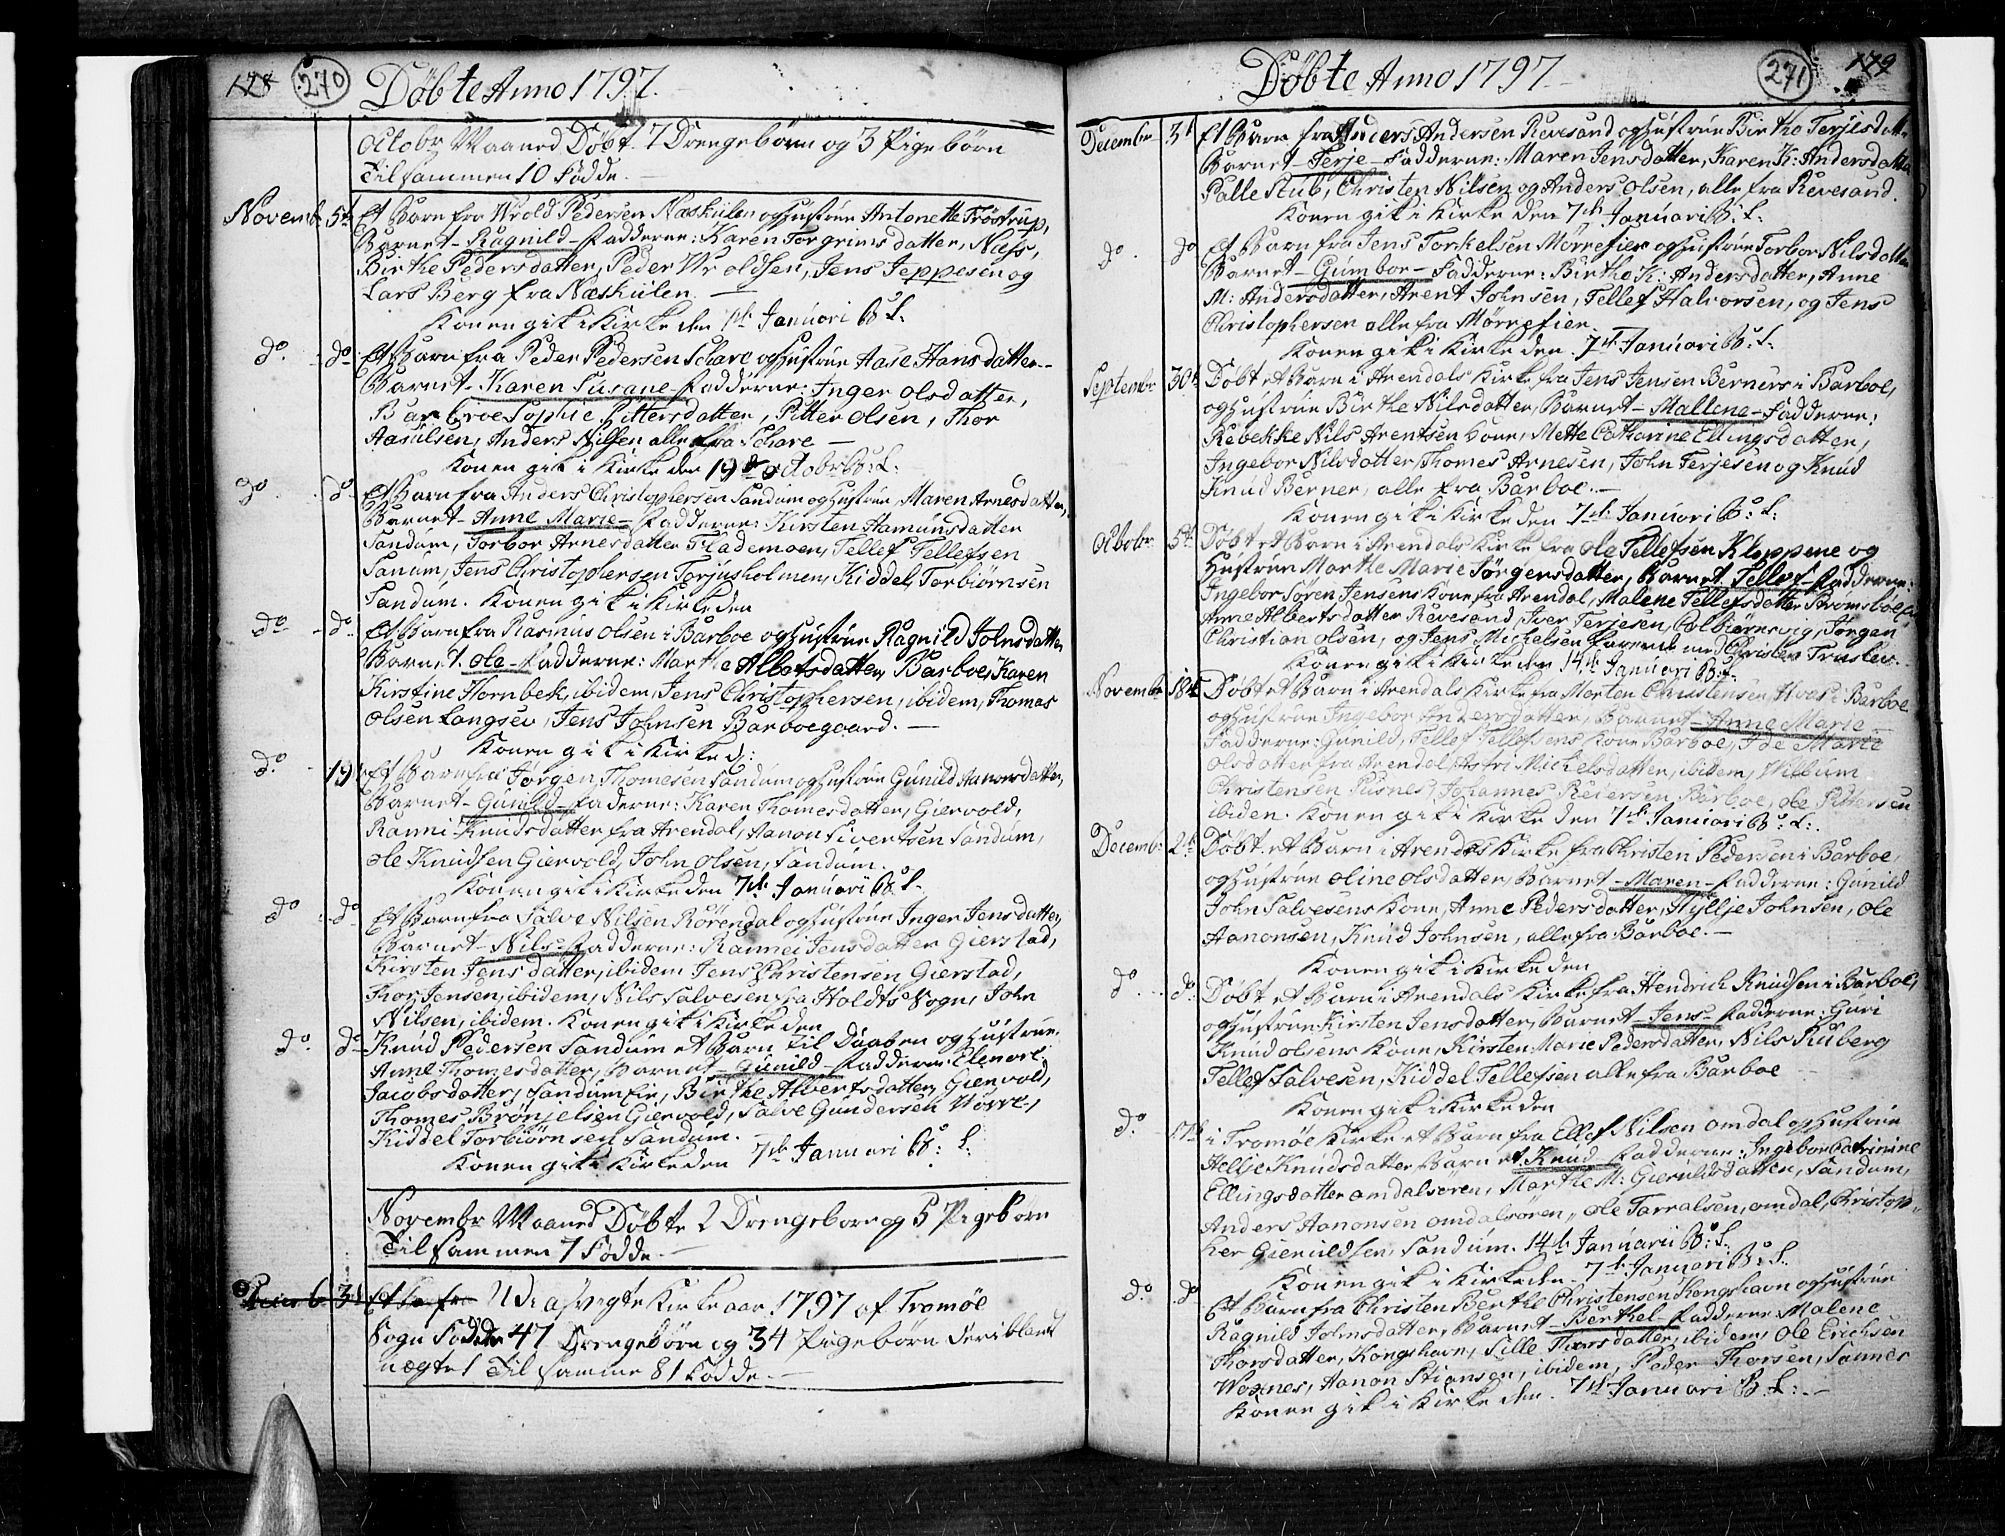 128 270 Döbte Anno 1797.
Octobr Maaned Döbt 7 Drengebörn og 3 Pigebörn
Tilsammen 10 Födde.
Novemb. 5t Et Barn fra Wrold Pedersen Næskilen og Hustrue Antonette Tröstrup,
Barnet - Ragnild - Fadderne: Karen Torgrims datter, Næss,
Birthe Pedersdatter, Peder Wroldsen, Jens Jeppesen og
Lars Berg fra Næskilen
Konen gik i Kirke den 1t Januari
do. do Et Barn fra Peder Pedersen Schare og Hustrue Aase Hansdatter
Barnet - Karen Susane - Fadderne: Inger Olsdatter,
Barbroe Sophie Pittersdatter, Pitter Olsen, Thor
Aasulsen, Anders Nilsen alle fra Schare
Konen gik i Kirke den 19de Octobr
do. do Et Barn fra Anders Christophersen Sandum og Hustrue Maren Arnesdatter,
Barnet - Anne Marie - Fadderne: Kirsten Hamunsdatter
Sandum, Torbor Arnesdatter Flademoen, Tellef Tellefsen
Sanum, Jens Christophersen Torjusholmen, Kiddel Torbiörnsen
Sandum. Konen gik i Kirke den
do do Et Barn fra Rasmus Olsen i Barboe og Hustrue Ragnild Johnsdatter
Barnet. Ole - Fadderne: Marthe Albetsdatter, Barboe, Karen
Kirstine Hornbek, ibidem, Jens Christophersen, ibidem, Thomas
Olsen Langsev, Jens Johnsen Barboegaard.
Konen gik i Kirke d:
do. 19 Et Barn fra Jörgen Thomesen Sandum og Hustrue Gunild Aanonsdatter,
Barnet - Gunild - Fadderne: Karen Thomesdatter, Giervold,
Ranni Knudsdatter fra Arendal, Aanon Sivertsen Sandum,
Ole Knudsen Giervold, John Olsen, Sandum.
Konen gik i Kirke den 7de Januari
do do Et Barn fra Salve Nilsen Rörendal og Hustrue Inger Jensdatter,
Barnet - Nils - Fadderne: Rannei Jensdatter Gierstad,
Kirsten Jensdatter, ibidem Jens Christensen Gierstad,
Thor Jensen, ibidem, Nils Salvesen fra Holdts Sogn, John
Nilsen, ibidem. Konen gik i Kirke den
do. do Knud Pedersen Sandum et Barn til Daaben og Hustrue
Anne Thomesdatter, Barnet - Gunild - Fadderne: Elenore
Jacobsdatter, Sandum Eie, Birthe Albertsdatter, Giervold,
Thomes Brönjelsen Giervold, Salve Gundersen
Kiddel Torbiörnsen Sandum.
Konen gik i Kirke den 7de Januari
Novembr Maaned Döbte 2 Drengebörn og 5 Pigebörn
Tilsammen 7 Födde.
31 Et Ba fra Udi afvigte Kirke aar 1797 af Tromöe
Sogn Födde 47 Drengebörn og 34 Pigebörn
Tilsamme 81 Födde.
Döbte Anno 1797 271 179
Decembr 31 Et Barn fra Anders Andersen Revesand og Hustrue Birthe Terjesdatter
Barnet - Terje - Fadderne: Maren Jensdatter, Karen K: Andersdatter
Palle Stub, Christen Nilsen og Anders Olsen, alle fra Revesand.
Konen gik i Kirke den 7de Januari
do. do Et Barn fra Jens Torkelsen Mörrefier og Hustrue Torbor Nilsdatter
Barnet - Gumbor - Fadderne: Birthe K: Andersdatter, Anne
M: Andersdatter, Arent Johnsen, Tellef Halvorsen, og Jens
Christophersen alle fra Mörrefier.
Konen gik i Kirke den 7de Januari
Septembr 30t Döbt et Barn i Arendals Kirke fra Jens Jensen Berners i Barboe,
og Hustrue Birthe Nilsdatter, Barnet - Mallene - Fadderne:
Rebekke Nils Arentsen Kone, Mette Catharine Ellingsdatter,
Ingebor Nilsdatter, Thomes Arnesen, John Terjesen og Knud
Knud Berner, alle fra Barboe.
Konen gik i Kirke den 7de Januari
Octobr 5t Döbt et Barn i Arendals Kirke fra Ole Tellefsen Kloppene og
Hustrue Marthe Marie Jörgensdatter, Barnet Tellef - Fadderne:
Ingebor Sören Jensens Kone fra Arendal, Malene Tellefsdatter Brömsboe
Anne Albertsdatter Revesand, Iver Terjesen, Colbiörnsvig, Jörgen
Christian Olsen, og Jens Mickelsen
Konen gik i Kirke den 14de Januari
Novembr 18t Döbt et Barn i Arendals Kirke fra Morten Christensen Hvas i Barboe
og Hustrue Ingebor Andersdatter, Barnet - Anne Marie
Fadderne: Gunild, Tellef Tellefsens Kone Barboe, Ide Marie
Olsdatter fra Arendal, Mickelsdatter, ibidem, Willum
Christensen Pusnes, Johannes Reiersen, Barboe, Ole Pittersen
ibiden. Konen gik i Kirke den 7de Januari
Decemb: 2t Döbt et Barn i Arendals Kirke fra Christen Pedersen i Barboe,
og Hustrue Oline Olsdatter, Barnet - Maren - Fadderne: Gunild
John Salvesens Kone, Anne Pedersdatter, Tyllje Johnsen, Ole
Aanonsen, Knud Johnsen, alle fra Barboe.
Konen gik i Kirke den
do. do. Döbt et Barn i Arendals Kirke fra Hendrich Knudsen i Barboe,
og Hustrue Kirsten Jensdatter, Barnet - Jens - Fadderne: Guri
Knud Olsens Kone, Kirsten Marie Pedersdatter, Nils Ruberg
Tellef Salvesen, Kiddel Tellefsen alle fra Barboe
Konen gik i Kirke den
do. 17 i Tromöe Kirke et Barn fra Ellef Nilsen Omdal og Hustrue
Helje Knudsdatter, Barnet. Knud - Fadderne: Ingebor Catrinine
Ellingsdatter Omdalsören, Marthe M: Gieruldsdatter, Sandum,
Anders Aanonsen Omdalsören, Ole Tarralsen, Omdal, Christop„
her Gieruldsen, Sandum. 14de Januarii
Konen gik i Kirke den 7de Januari
do do Et Barn fra Christen Berthel Christensen Kongshavn og Hustrue
Ragnild Johnsdatter, Barnet - Berthel - Fadderne: Malene
Thorsdatter, Kongshavn, Sille Thorsdatter, ibidem, Ole Erichsen
Woxnes, Aanon Stiansen, ibidem, Peder Thorsen, Sannes
Konen gik i Kirke den. 7de Januari